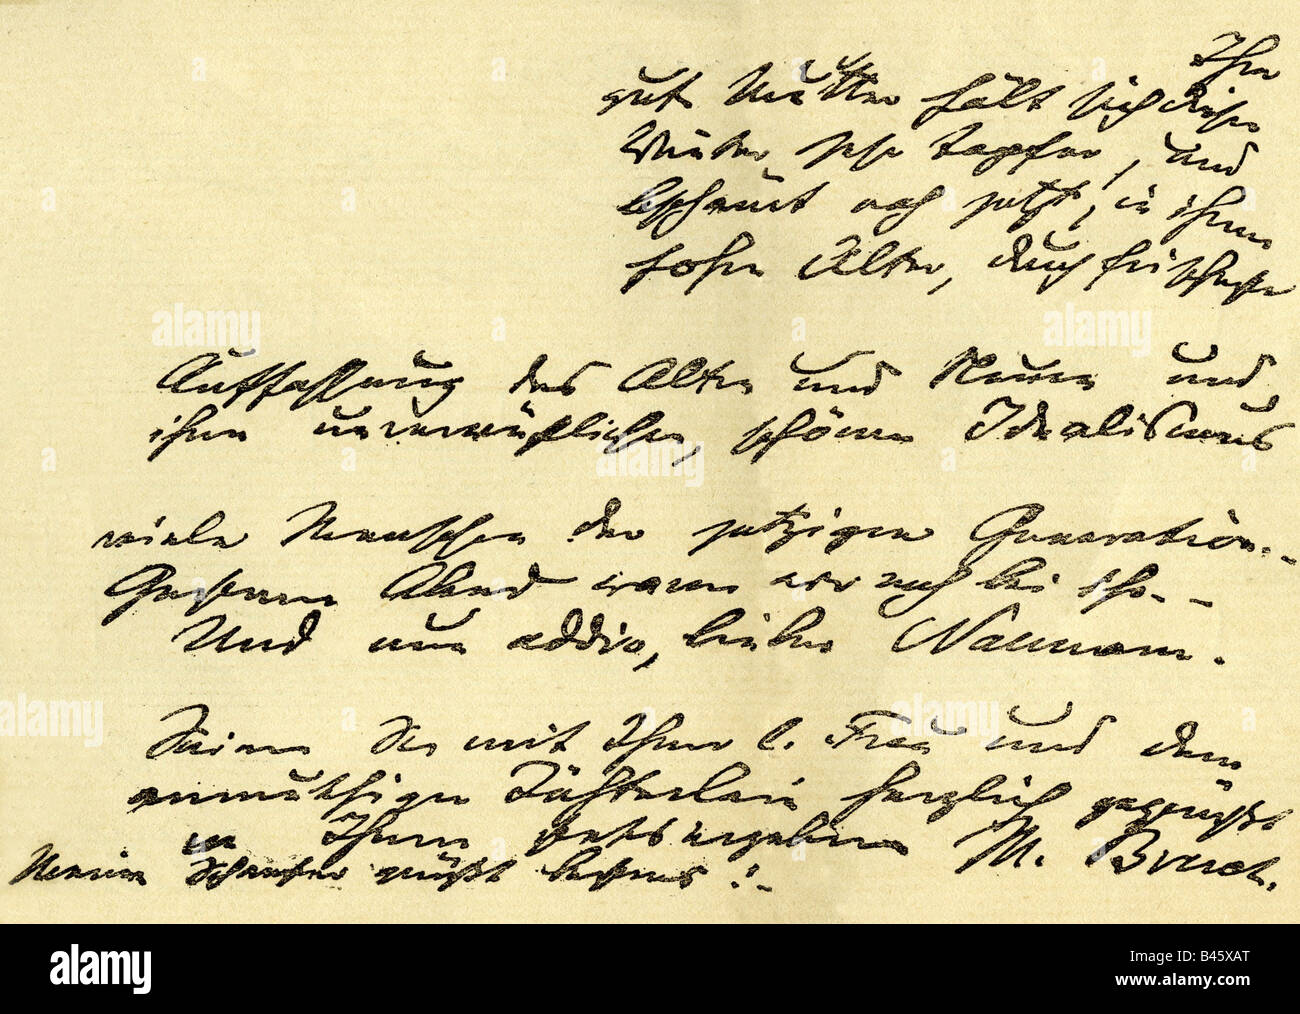 Ihre
gute Mutter hält sich diesen
Winter sehr tapfer, und
beschämt noch jetzt, in ihrem
hohen Alter, durch frischeste
Auffassung des Alten und Neuen und
ihren unverwüstlichen, schönen Idealismus
viele Menschen der jetzigen Generation.
Gestern Abend waren wir noch bei ihr.
Und nun addio, lieber Naumann.
Seien Sie mit Ihrer l. Frau und dem
anmuthigen Töchterlein herzlich gegrüßt
von Ihrem stets ergebenen M. Bruch.
Meine Schwester grüßt bestens!
alamy
Image ID: B45XAT
www.alamy.com